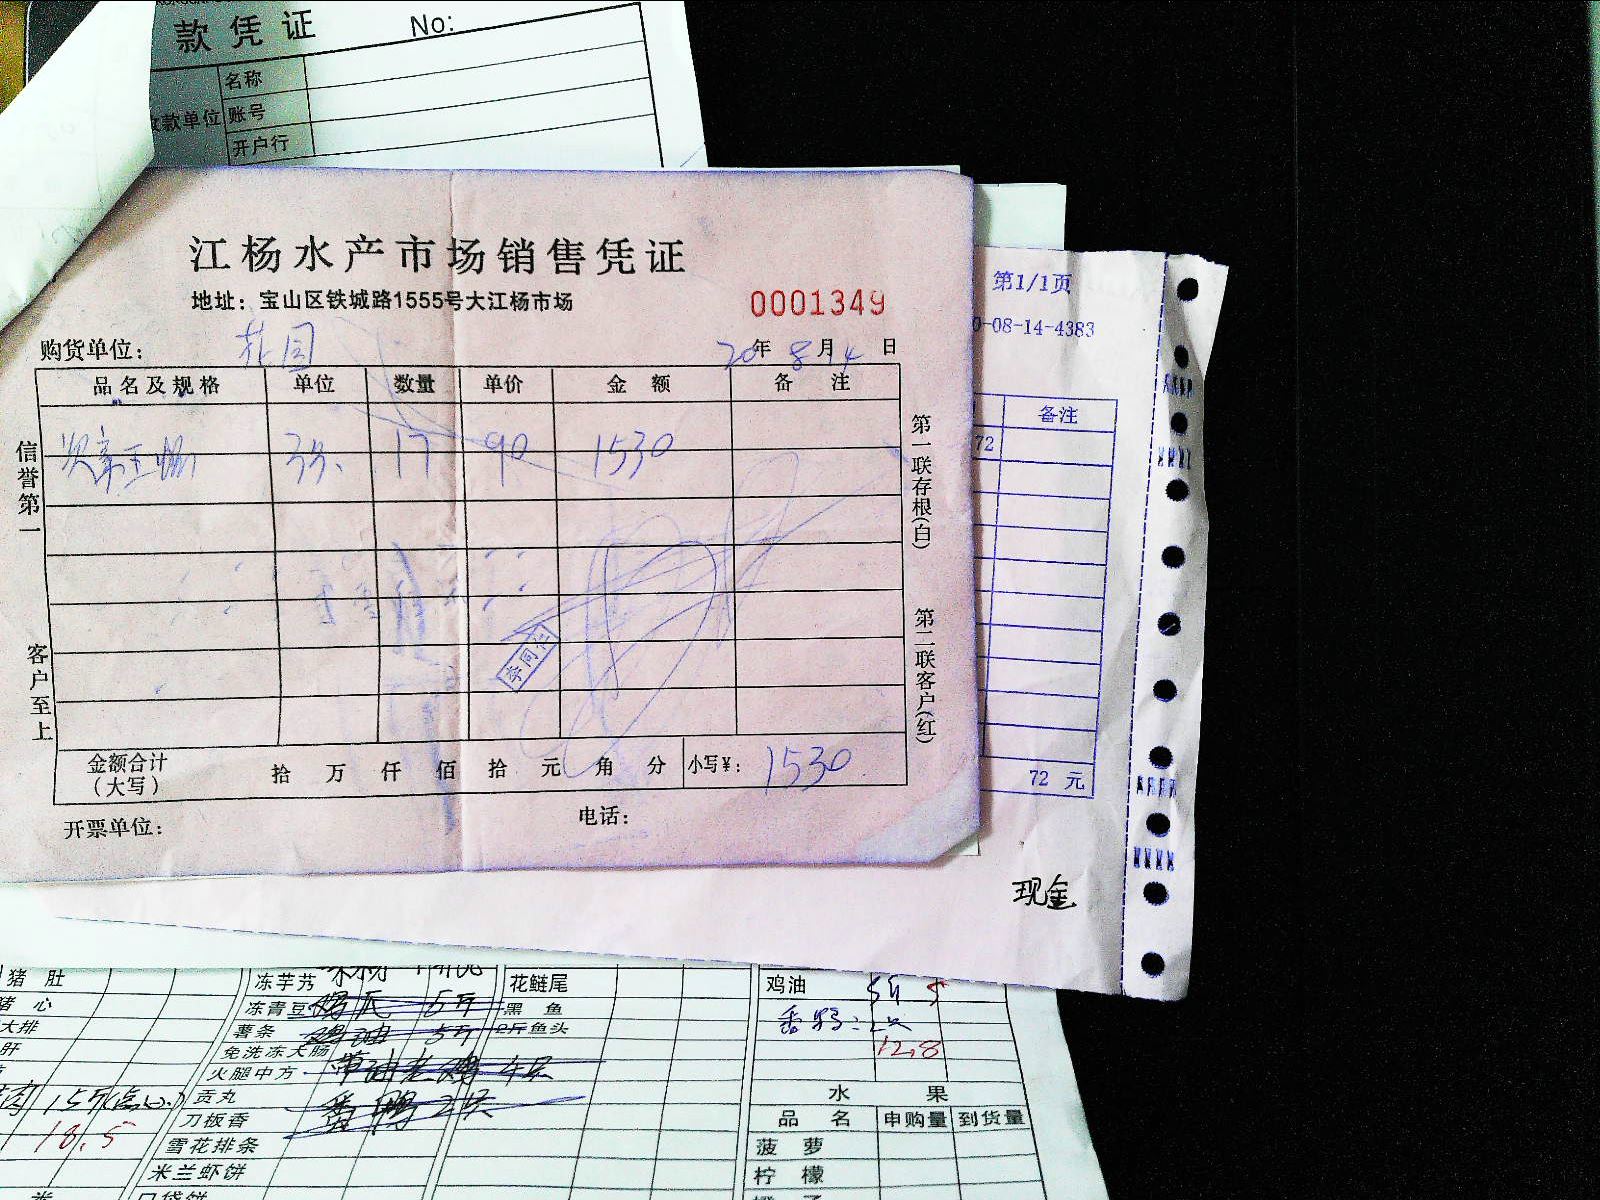 款凭证 No:
名称
收款单位 账号
开户行
江杨水产市场销售凭证
地址：宝山区铁城路1555号大江杨市场
0001349
购货单位： 20年8月14日
品名及规格 单位 数量 单价 金额 备注
17 90 1530
信誉第一
客户至上
第一联存根(白)
第二联客户(红)
李同仁
金额合计（大写） 拾 万 仟 佰 拾 元 角 分 小写¥： 1530
开票单位： 电话：
第1/1页
0-08-14-4383
备注
72
72 元
现金
猪肚 冻芋艿 花鲢尾 鸡油 5斤 5
猪心 冻青豆 5斤 黑鱼
大排 薯条 鸡油 5斤 鱼头
肝 免洗冻大肠 12.8
火腿中方 水果
15斤 贡丸 品名 申购量 到货量
18.5 刀板香
雪花排条 菠萝
米兰虾饼 柠檬